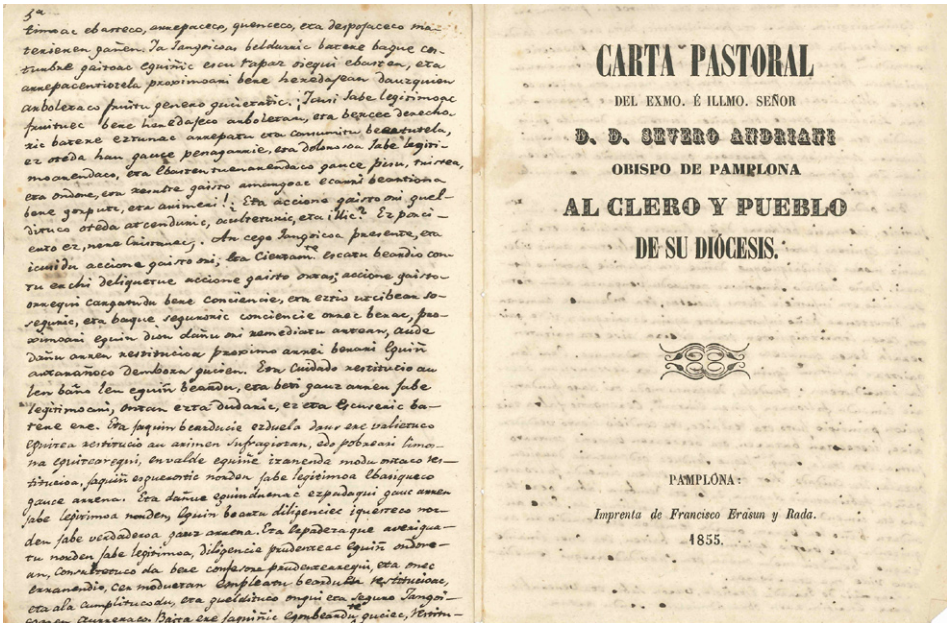 5ª
timoac ebasteco, arrepaceco, quenceco, eta desposaceco ma-
terienen gañen. Ta Jangoicoac beldurric batere baque cos-
tumbre gaistoac eguiñic escu tapaz siequi ebasten, eta
proximoari bere heredajean dauzquien
arboletaco fruitu genero gucietaric. Icusi Jabe legitimoac
fruituec bere heredajeco arboletan, eta berce derecho-
ric batere eztunac arrepatu eta consumitu
ez oteda hau gauce penagarrie, eta dolorosa Jabe legiti-
moarendaco, eta gauce pisu, tristea,
eta ondore, eta gaisto amargoac ecarri beartiona
bere gorputz, eta animeri! Eta accione gaisto oni guel-
dituco oteda atcenduric, eta illic? Ez paci-
ento ez, nere Cristioac. An cego Jangoicoa presente, eta
icusi du accione gaisto oni; Eta escatu beardio con
tu accione gaisto ontas; accione gaisto
onrequi cargatu du bere conciencie, eta eztio utcibear so-
seguric, eta baque seguroric conciencie onrec berac, pro-
ximoari eguin dion dañu oni remediatu artean, aude
dañu arren restitucioa proximo arrei berari eguiñ
artarañoco dembora gucien. Eta Cuidado restitucio au
len baño len eguiñ beardu, eta beti gauz arren Jabe
legitimoari, ontan ezta dudaric, ez eta Escuseric ba-
tere ere. Eta Jaquin bearducie ezduela daus ere valiatuco
eguitea restitucio au arimen Sufragiotan, edo pobreari limos-
na eguitearequi, envalde eguiñe izanenda modu ontaco res-
titucioa, Jaquiñ ezquerostic norden Jabe legitimoa ebasiqueco
gauce arrena. Eta dañue eguinduenac ezpadaqui gauc arren
Jabe legitimoa norden, eguin beartu diligenciec iquesteco nor-
den Jabe verdaderoa gauz arrena. Eta lepadezaque averigua-
tu norden Jabe legitimoa, diligencie prudenteac eguiñ ondore-
an, Consultatuco da bere confesore prudentearequi, eta onec
erranendio, cer moduetan empleatu bearduen restitucioac,
eta ala cumplitucodu, eta gueldituco ongui eta seguro Jangoi-
coaren aurrenaco. Baita ere Jaquiñic guciec,
CARTA PASTORAL
DEL EXMO. É ILLMO. SEÑOR
D. D. SEVERO ANDRIANI
OBISPO DE PAMPLONA
AL CLERO Y PUEBLO
DE SU DIÓCESIS.
PAMPLONA:
Imprenta de Francisco Erasun y Rada.
1855.